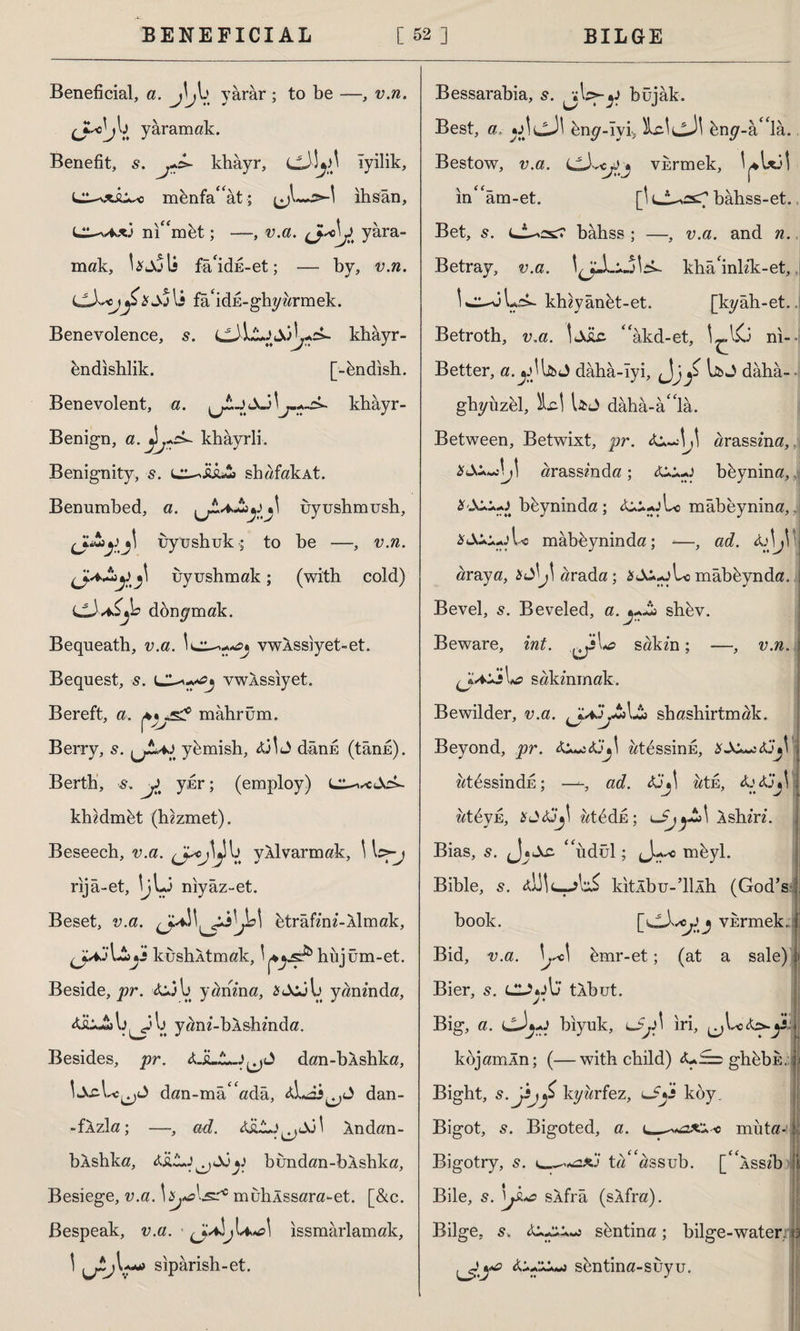 BENEFICIAL [ 52 ] BILGE
Beneficial, a. يارار yàràr ; to be —, v.n.
يارامق yàramak.
Benefit, s. خير khàyr, ايولك ïyilik,
منفعت mènfa“àt ; احسان ihsān,
نعمت ni“mèt ; —, v.a. يرامق yàra-
mak, فائده ا fā‘idE-et ; — by, v.n.
فائده كورمك fā‘idE-ghyùrmek.
Benevolence, s. خيرانديشلك khàyr-
èndìshlik. [-èndìsh.
Benevolent, a. خيرانديش khàyr-
Benign, a. خيرلو khàyrli.
Benignity, s. شفقت shafakAt.
Benumbed, a. اويوشمش ùyushmush,
اويوشق ùyushuk ; to be —, v.n.
اويوشمق ùyushmak ; (with cold)
طوكمك dòngmak.
Bequeath, v.a. وصيت ا vwAssìyet-et.
Bequest, s. وصيت vwAssìyet.
Bereft, a. محروم màhrūm.
Berry, s. يمش yèmish, دانه dānE (tānE).
Berth, s. ير yEr ; (employ) خدمت
khidmèt (hizmet).
Beseech, v.a. يالوارمق yAlvarmak, رجا ا
rìjā-et, نياز ا niyāz-et.
Beset, v.a. اطرافنى المق ètràfini-Almak,
قوشاتمق kùshAtmak, هجوم ا hùjūm-et.
Beside, pr. يانينه yànina, ياننده yàninda,
يانى باشنده yàni-bAshinda.
Besides, pr. دن بشقه dan-bAshka,
دن ماعدا dan-mā“adā, دن فضله dan-
-fAzla ; —, ad. اندن بشقه Andan-
bAshka, بوندن بشقه bùndan-bAshka,
Besiege, v.a. محاصره ا mùhAssara-et. [&c.
Bespeak, v.a. اصمارلامق ìssmàrlamak,
سپارش ا sìpàrish-et.
Bessarabia, s. بوجاق bùjàk.
Best, a. اك ايو èng-ïyi, اك اعلا èng-à“lā.
Bestow, v.a. ويرمك vErmek, انعام ا
in“ām-et. [بحث ا bàhss-et.
Bet, s. بحث bàhss ; —, v.a. and n.
Betray, v.a. خائنلق ا khā‘inlik-et,
خيانت ا khiyānèt-et. [kyàh-et.
Betroth, v.a. عقد ا “àkd-et, نكاح ا ni-
Better, a. دها ايو dàhà-ïyi, دها كوزل dàhà-
ghyùzèl, دها اعلا dàhà-à“lā.
Between, Betwixt, pr. اراسينه àrassina,
اراسنده àrassinda ; بيننه bèynina,
بيننده bèyninda ; مابيننه mābèynina,
مابيننده mābèyninda ; —, ad. ارايه
àraya, اراده àrada ; مابينده mābèynda.
Bevel, s. Beveled, a. شيو shèv.
Beware, int. صاقن sàkin ; —, v.n.
صاقنمق sàkinmak.
Bewilder, v.a. شاشرتمق shashirtmàk.
Beyond, pr. اوته سينه ùtéssinE, اوته سنده
ùtéssindE ; —, ad. اوته ùtE, اوته يه
ùtéyE, اوته ده ùtédE ; اشورى Ashiri.
Bias, s. عدول “ùdūl ; ميل mèyl.
Bible, s. كتاب الله kitAbu-’llAh (God’s
book. [ويرمك vErmek.
Bid, v.a. امر ا èmr-et ; (at a sale)
Bier, s. تابوت tAbut.
Big, a. بيوك bìyuk, ايرى iri, قوجه مان
kòjamAn ; (— with child) كبه ghèbE.
Bight, s. كورفز kyùrfez, قوى kòy.
Bigot, s. Bigoted, a. متعصب mùta-
Bigotry, s. تعصب tà“àssub. [“Assib
Bile, s. صفرا sAfrā (sAfra).
Bilge, s. سنتينه sèntina ; bilge-water,
سنتينه صويى sèntina-sùyu.